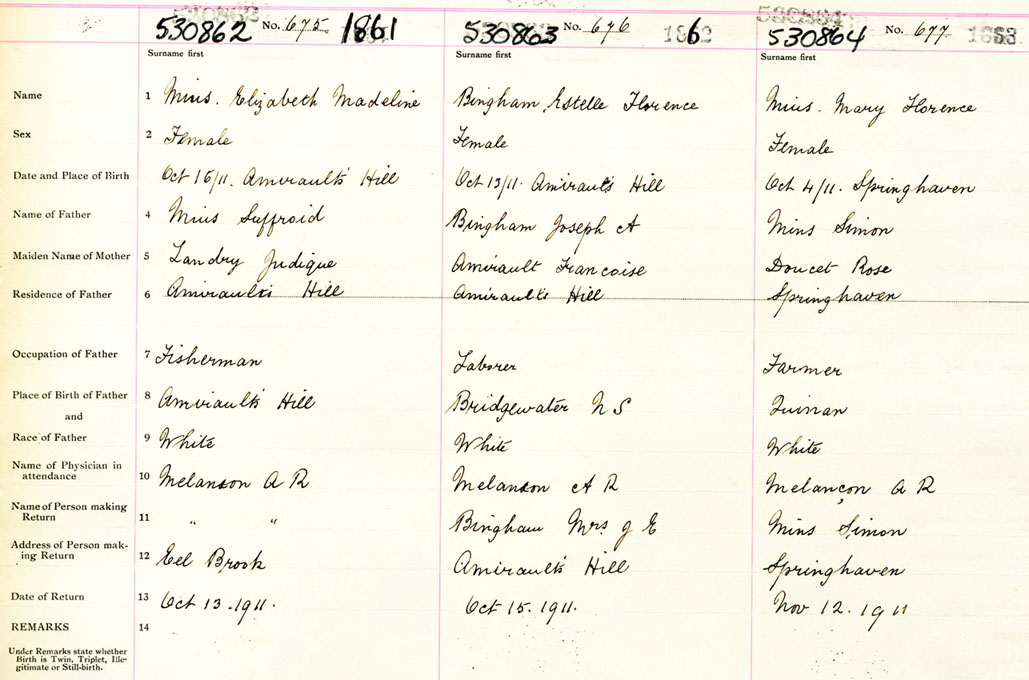 530862 No. 675 1861 530863 No. 676 6 530864 No. 677
Surname first Surname first Surname first
Name 1 Mius. Elizabeth Madeline Bingham, Estelle Florence Mius. Mary Florence
Sex 2 Female Female Female
Date and Place of Birth Oct /11. Amirault's Hill Oct 13/11. Amirault's Hill Oct 4/11. Springhaven
Name of Father 4 Mius Suffroid Bingham Joseph A Mius Simon
Maiden Name of Mother 5 Landry Judique Amirault Francoise Doucet Rose
Residence of Father 6 Amirault's Hill Amirault's Hill Springhaven
Occupation of Father 7 Fisherman Laborer Farmer
Place of Birth of Father 8 Amirault's Hill Bridgewater N S Quinan
and
Race of Father 9 White White White
Name of Physician in
attendance 10 Melanson A R Melanson A R Melançon A R
Name of Person making
Return 11 " " Bingham Mrs J E Mius Simon
Address of Person mak-
ing Return 12 Eel Brook Amirault's Hill Springhaven
Date of Return 13 Oct 13.1911. Oct 15.1911. Nov 12.1911
REMARKS 14
Under Remarks state whether
Birth is Twin, Triplet, Ille-
gitimate or Still-birth.